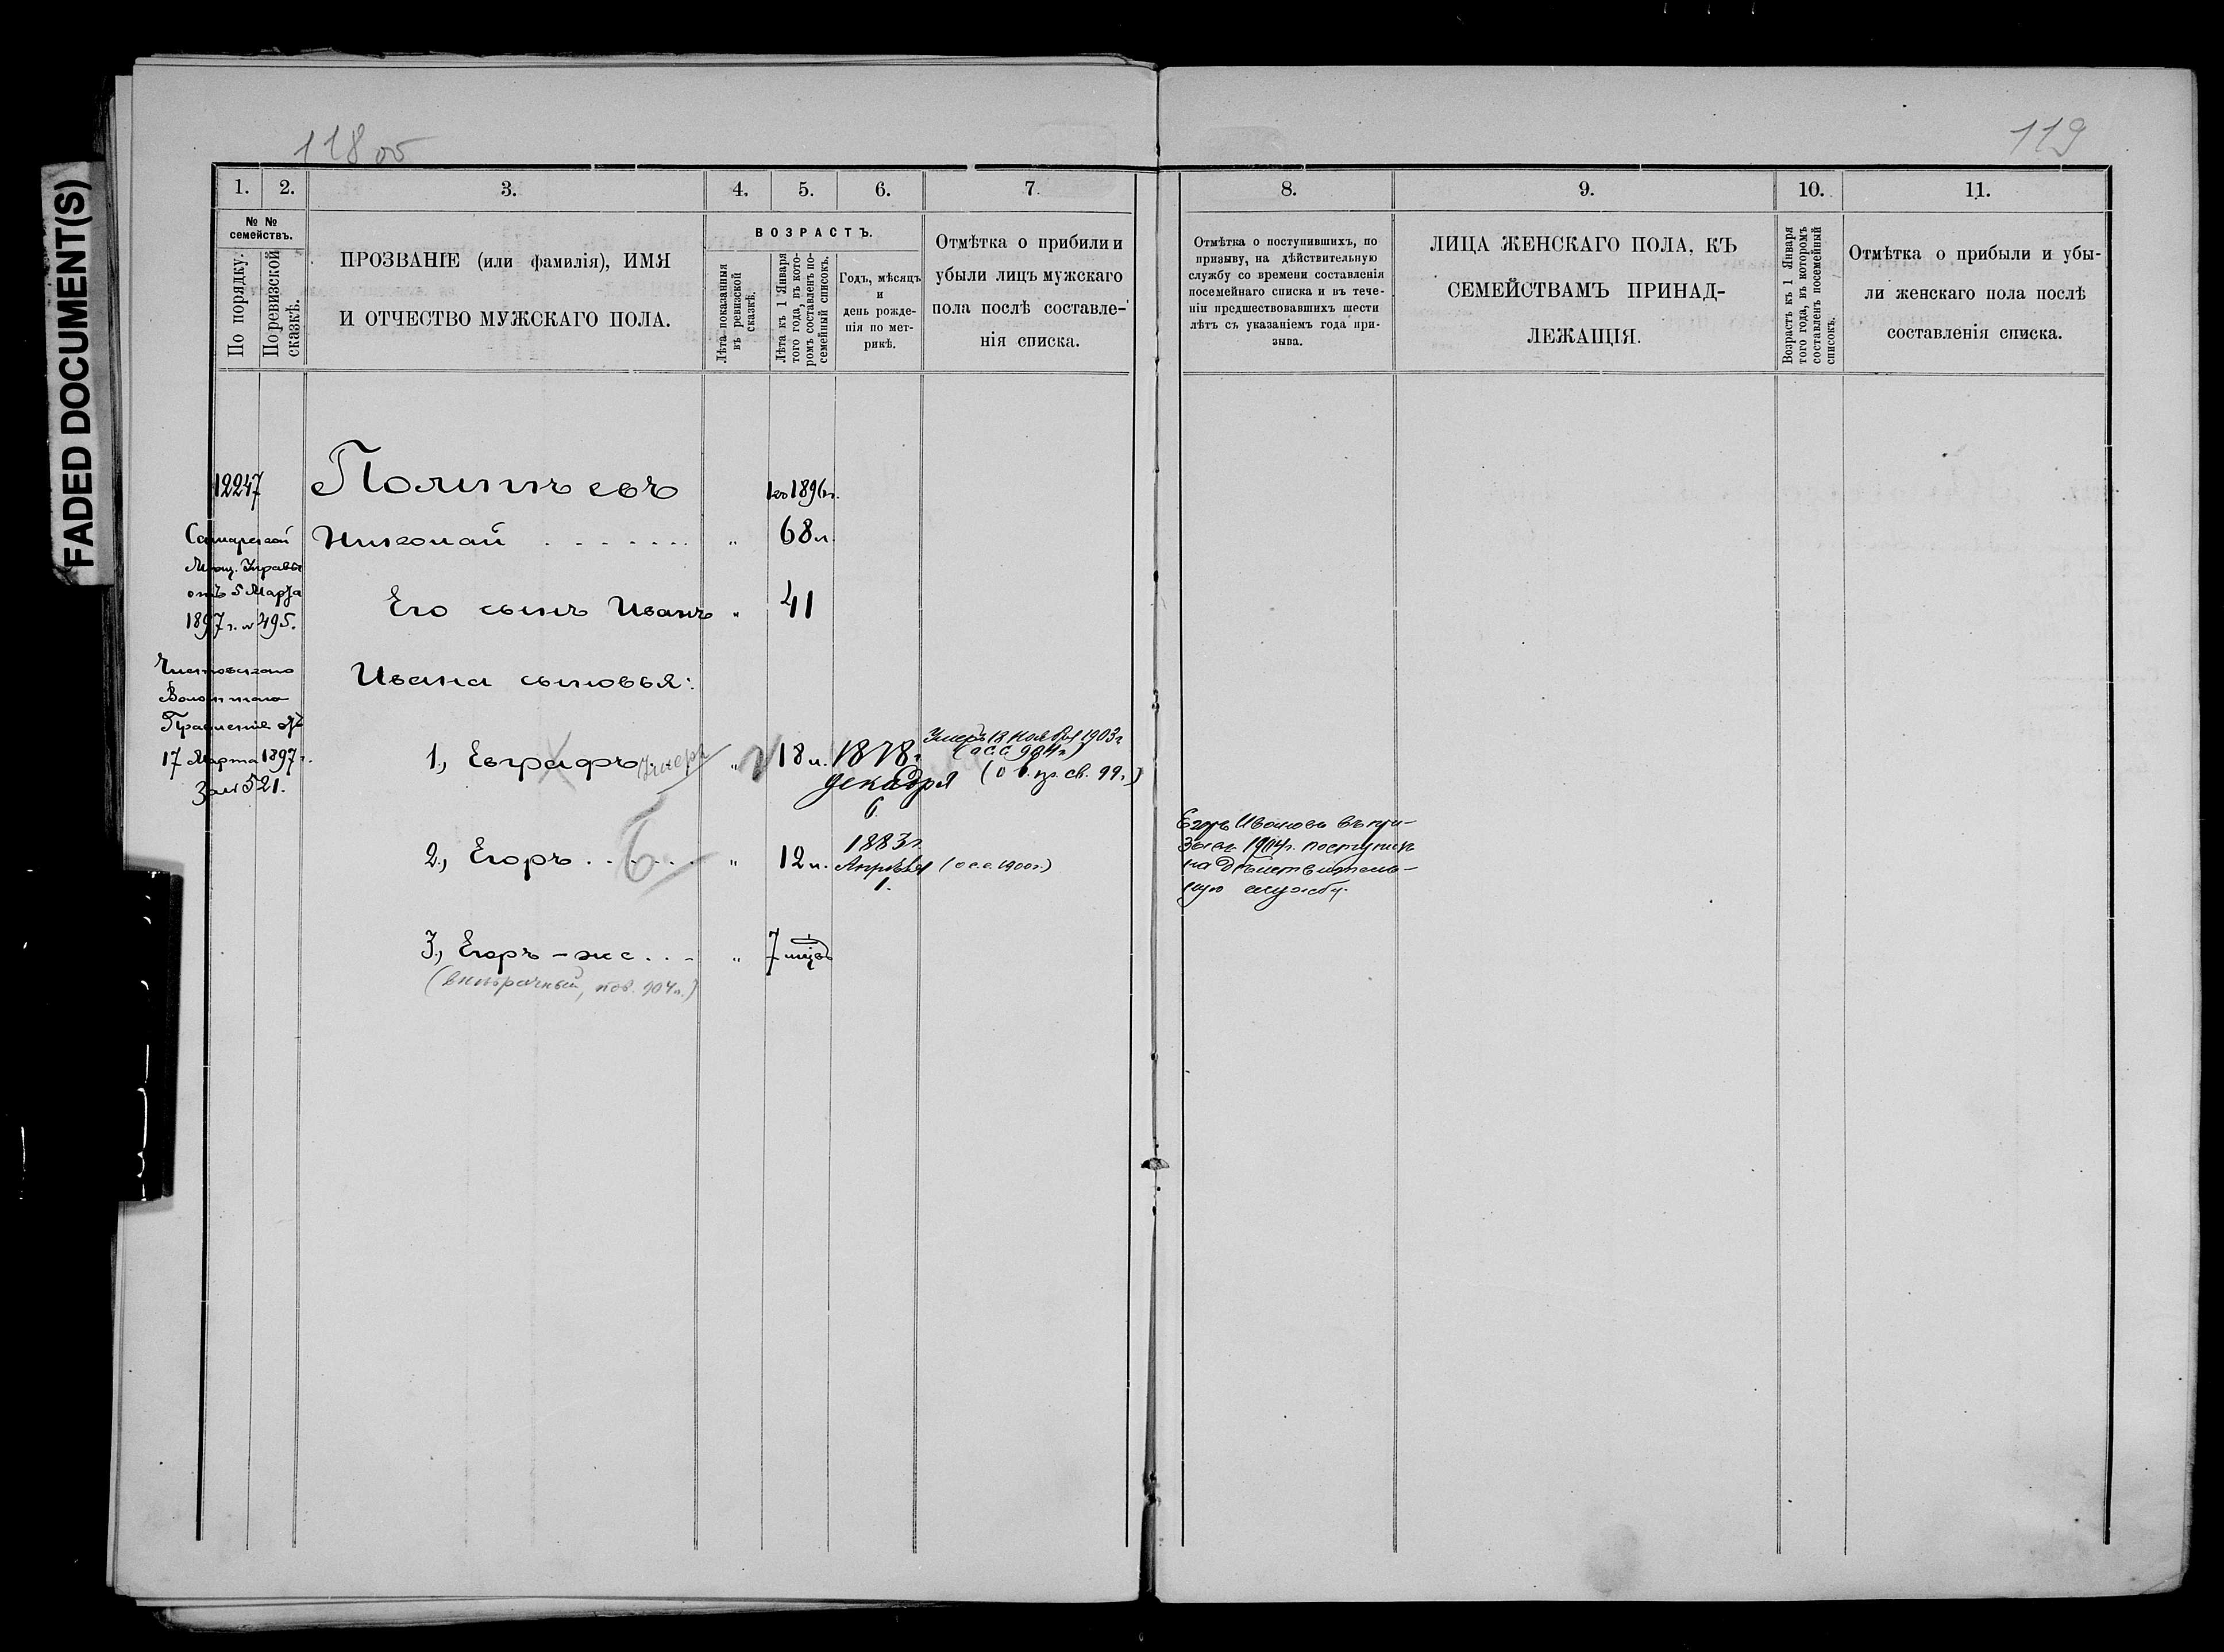 FADED DOCUMENT(S)
118 об
119
1.
2.
3.
4.
5.
6.
7.
8.
9.
10.
11.
№ №
семействъ.
По порядку.
По ревизской
сказкѣ.
ПРОЗВАНІЕ (или фамилія), ИМЯ
И ОТЧЕСТВО МУЖСКАГО ПОЛА.
ВОЗРАСТЪ.
Лѣта показанныя
въ ревизской
сказкѣ.
Лѣта къ 1 Января
того года, въ кото-
ромъ составленъ по-
семейный списокъ.
Годъ, мѣсяцъ
и
день рожде-
нія по мет-
рикѣ.
Отмѣтка о прибили и
убыли лицъ мужскаго
пола послѣ составле-
нія списка.
Отмѣтка о поступившихъ, по
призыву, на дѣйствительную
службу со времени составленія
посемейнаго списка и въ тече-
ніи предшествовавшихъ шести
лѣтъ съ указаніемъ года при-
зыва.
ЛИЦА ЖЕНСКАГО ПОЛА, КЪ
СЕМЕЙСТВАМЪ ПРИНАД-
ЛЕЖАЩІЯ.
Возрастъ къ 1 Января
того года, въ которомъ
составленъ посемейный
списокъ.
Отмѣтка о прибыли и убы-
ли женскаго пола послѣ
составленія списка.
12247
1896 г.
Самарской
Мѣщ. Управы
отъ 5 Марта
1897 г. № 495.
Николай . . . . . . . " 68 л.
Его сынъ Иванъ " 41
Волостнаго
Правленія отъ
17 Марта 1897 г.
за № 521.
Ивана сыновья:
1., Евграфъ умеръ " 18 л. 1878 г.
Декабря
6.
Умеръ 18 Ноября 1903 г.
2., Егоръ . . . . " 12 л. 1883 г.
Апрѣля
1.
(о с. с. 1900 г.)
Егоръ Ивановъ въ при-
зывъ 1904 г. поступилъ
на дѣйствитель-
ную службу.
3., Егоръ - же . . - " 7 мѣс.
(внѣбрачный, 904 г.)